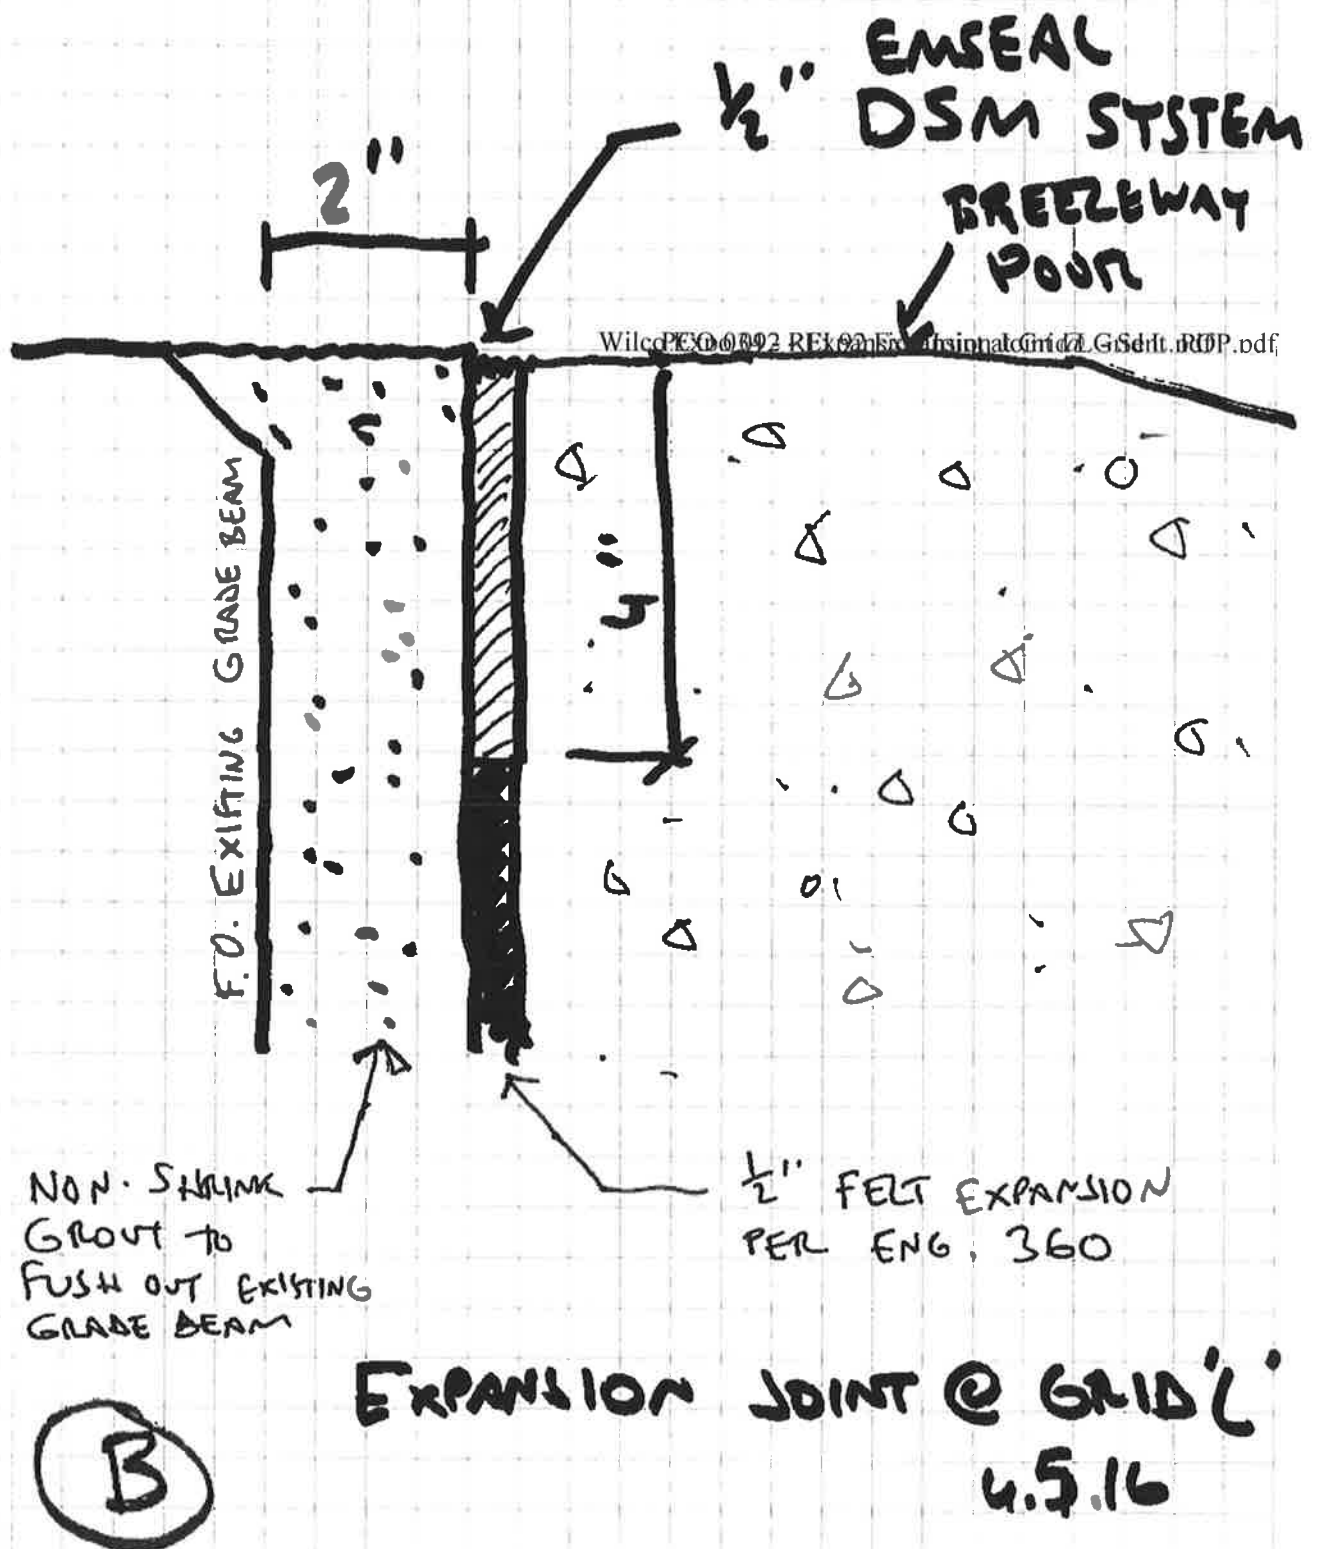 EMSEAL
1/2" DSM SYSTEM
2"
BREEZEWAY
POUR
F.O. EXISTING GRADE BEAM
NON-SHRINK
GROUT TO
FUSH OUT EXISTING
GRADE BEAM
1/2" FELT EXPANSION
PER ENG. 360
EXPANSION JOINT @ GRID 'L'
4.5.16
B